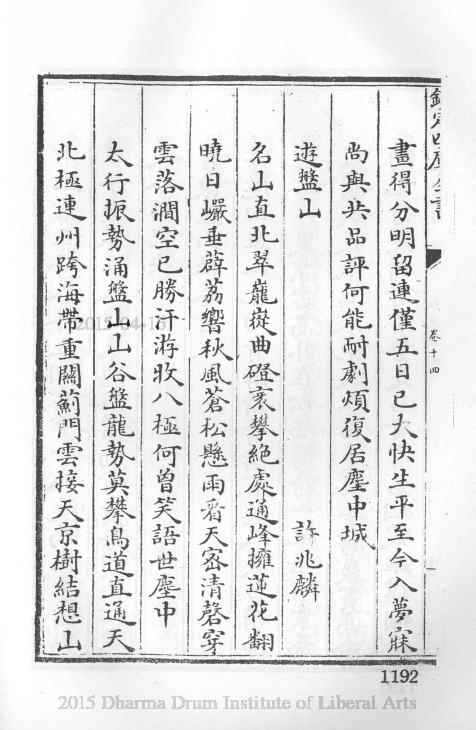 欽定四庫全書
卷十四
畫得分明留連僅五日已大快生平至今入夢寐
尚與共品評何能耐劇煩復居塵中城
遊盤山 許兆麟
名山直北翠巃嵸曲磴裒攀絶處通峰擁蓮花翻
曉日巗垂薜荔響秋風蒼松懸雨看天宻清磬穿
雲落澗空已勝汗游牧八極何曾笑語世塵中
太行振勢涌盤山山谷盤龍勢莫攀鳥道直通天
北極連州跨海帶重關薊門雲接天京樹結想山
1192
2015-04-15
2015 Dharma Drum Institute of Liberal Arts